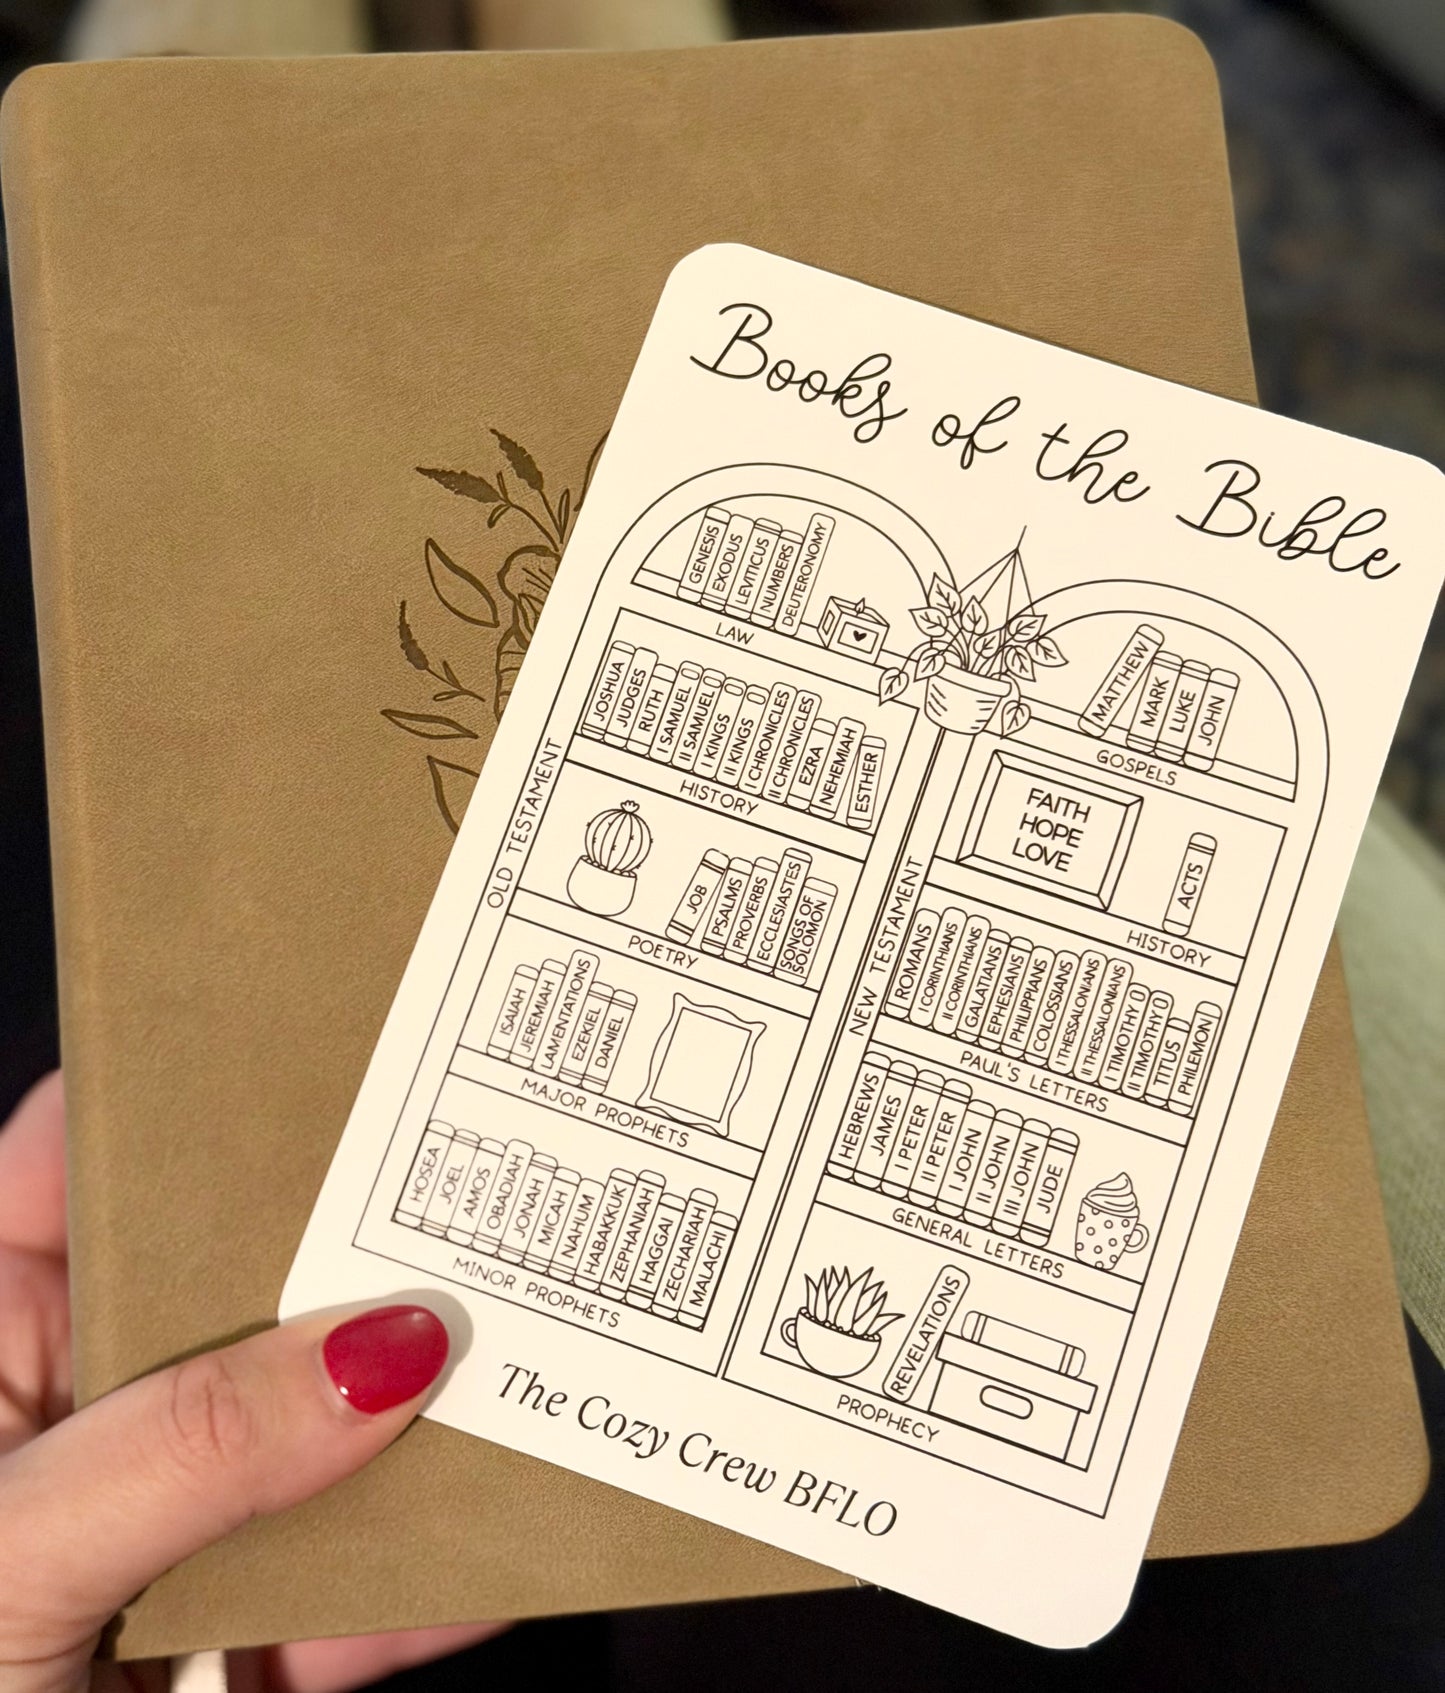 Books of the Bible
OLD TESTAMENT
GENESIS
EXODUS
LEVITICUS
NUMBERS
DEUTERONOMY
LAW
JOSHUA
JUDGES
RUTH
I SAMUEL
II SAMUEL
I KINGS
II KINGS
I CHRONICLES
II CHRONICLES
EZRA
NEHEMIAH
ESTHER
HISTORY
JOB
PSALMS
PROVERBS
ECCLESIASTES
SONGS OF
SOLOMON
POETRY
ISAIAH
JEREMIAH
LAMENTATIONS
EZEKIEL
DANIEL
MAJOR PROPHETS
HOSEA
JOEL
AMOS
OBADIAH
JONAH
MICAH
NAHUM
HABAKKUK
ZEPHANIAH
HAGGAI
ZECHARIAH
MALACHI
MINOR PROPHETS
NEW TESTAMENT
MATTHEW
MARK
LUKE
JOHN
GOSPELS
FAITH
HOPE
LOVE
ACTS
HISTORY
ROMANS
I CORINTHIANS
II CORINTHIANS
GALATIANS
EPHESIANS
PHILIPPIANS
COLOSSIANS
I THESSALONIANS
II THESSALONIANS
I TIMOTHY
II TIMOTHY
TITUS
PHILEMON
PAUL'S LETTERS
HEBREWS
JAMES
I PETER
II PETER
I JOHN
II JOHN
III JOHN
JUDE
GENERAL LETTERS
REVELATIONS
PROPHECY
The Cozy Crew BFLO